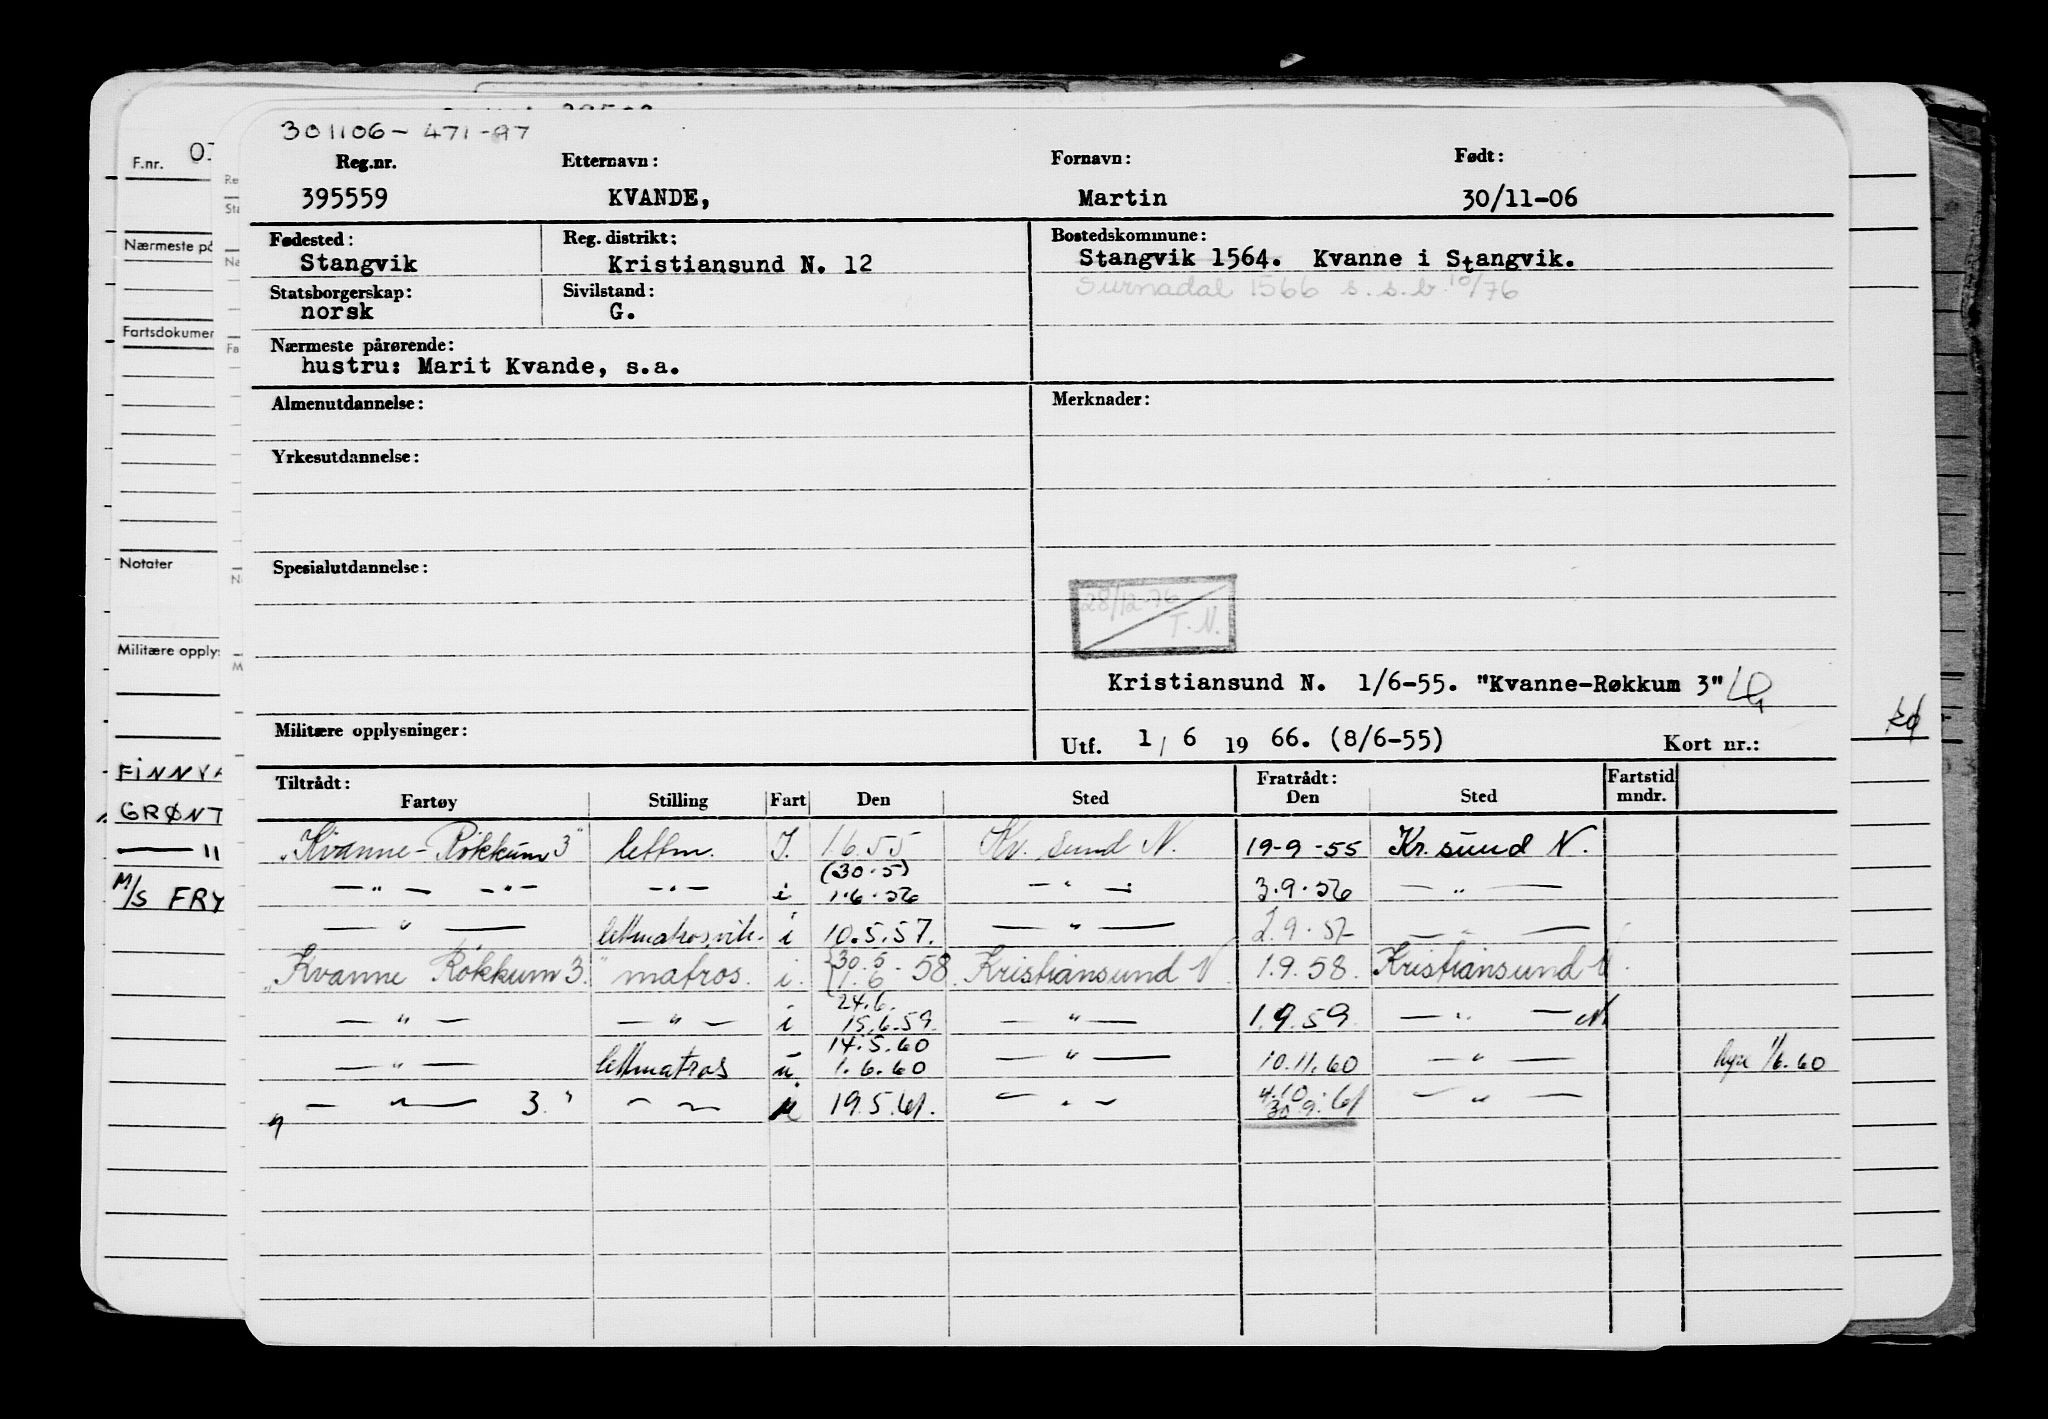 301106-471-97
Reg.nr. Etternavn: Fornavn: Født:
395559 KVANDE, Martin 30/11-06
Fødested: Reg. distrikt: Bostedskommune:
Stangvik Kristiansund N. 12 Stangvik 1564. Kvanne i Stangvik.
Surnadal 1566 s.s.b. 10/76
Statsborgerskap: Sivilstand:
norsk G.
Nærmeste pårørende:
hustru: Marit Kvande, s.a.
Almenutdannelse: Merknader:
Yrkesutdannelse:
Spesialutdannelse:
28/12-76
T.N.
Kristiansund N. 1/6-55. "Kvanne-Røkkum 3"
Militære opplysninger: Utf. 1/6 19 66. (8/6-55) Kort nr.:
Tiltrådt: Fratrådt: Fartstid
Fartøy Stilling Fart Den Sted Den Sted mndr.
"Kvanne-Røkkum 3" lettm. I. 1.6.55 Kr. sund N. 19-9-55 Kr. sund N.
(30.5)
— " — - " - - " - i 1.6.56 — " — 3.9.56 — " —
— " — lettmatros,vik. i 10.5.57. — " — 2.9.57 — " —
"Kvanne Røkkum 3." matros. i. 30.5 1.6 - 58. Kristiansund N 1.9.58. Kristiansund N.
24.6.
— " — — " — i 15.6.59. — " — 1.9.59 — " — N
14.5.60
— " — lettmatros u. 1.6.60 — " — 10.11.60 — " — hyre 1/6.60
" — " — 3." — " — u 19.5.61. — " — 4.10 30.9.61 — " —
F.nr. 03
Nærmeste på
Fartsdokumen
Notater
Militære opply
FINNVA
GRØNT
— "
M/S FRY